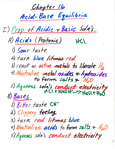 Chapter 16
Acid-Base Equilibria
I) Prop. of Acidic + Basic Sol'n.
A) Acids (Protonic) HCl
1) Sour taste
2) turn blue litmus red
3) react w/ active metals to liberate H₂
4) Neutralize metal oxides + hydroxides
to form salts + H₂O
5) Aqueous Sol'n's conduct electricity
B) Bases
1) Bitter taste
2) Slippery feeling
3) turn red litmus blue
4) Neutralize acids to form salts + H₂O
5) Aqueous Sol'n's conduct electricity